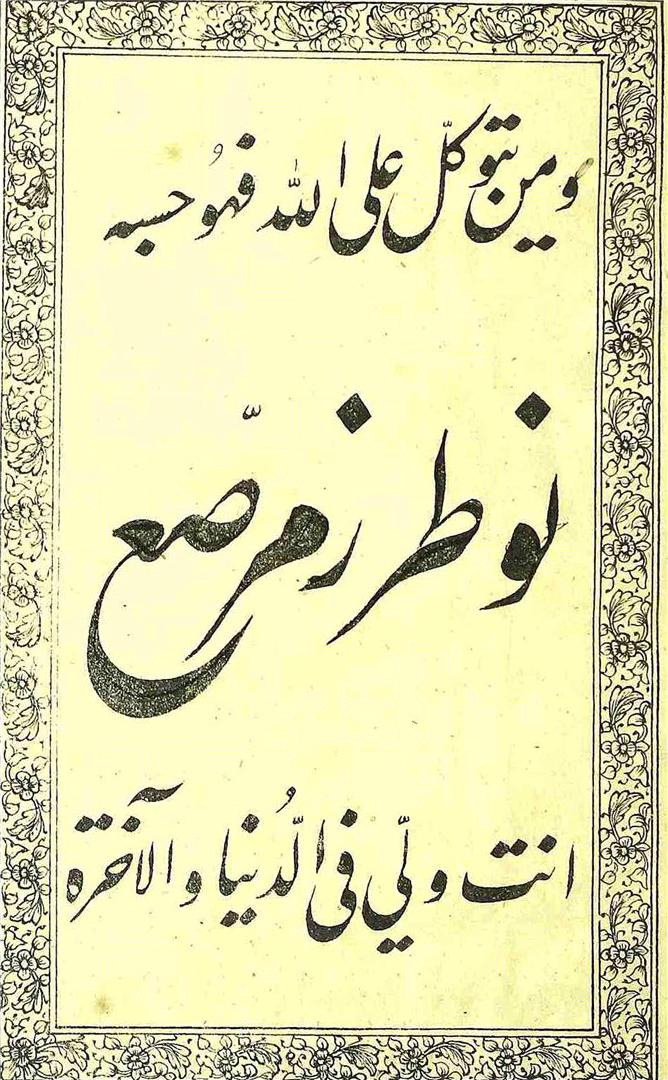 ومن یتوکّل علی اللّٰه فهُو حسبه
نو طرز مرصّع
انت ولیّ فی الدُّنیا و الآخرة